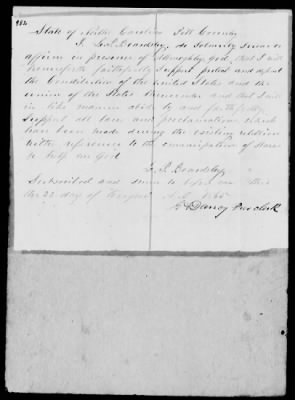 982
State of North Carolina Pitt County
I, do Solemnly swear or
affirm in presence of Almighty God, that I will
henceforth faithfully support protect and defend
the Constitution of the United States and the
union of the States thereunder and that I will
in like manner abide by and faithfully
support all laws and proclamations which
have been made during the existing rebellion
with reference to the emancipation of slaves
so help me God
Subscribed and sworn to before me this
the 22 day of August A.D. 1865